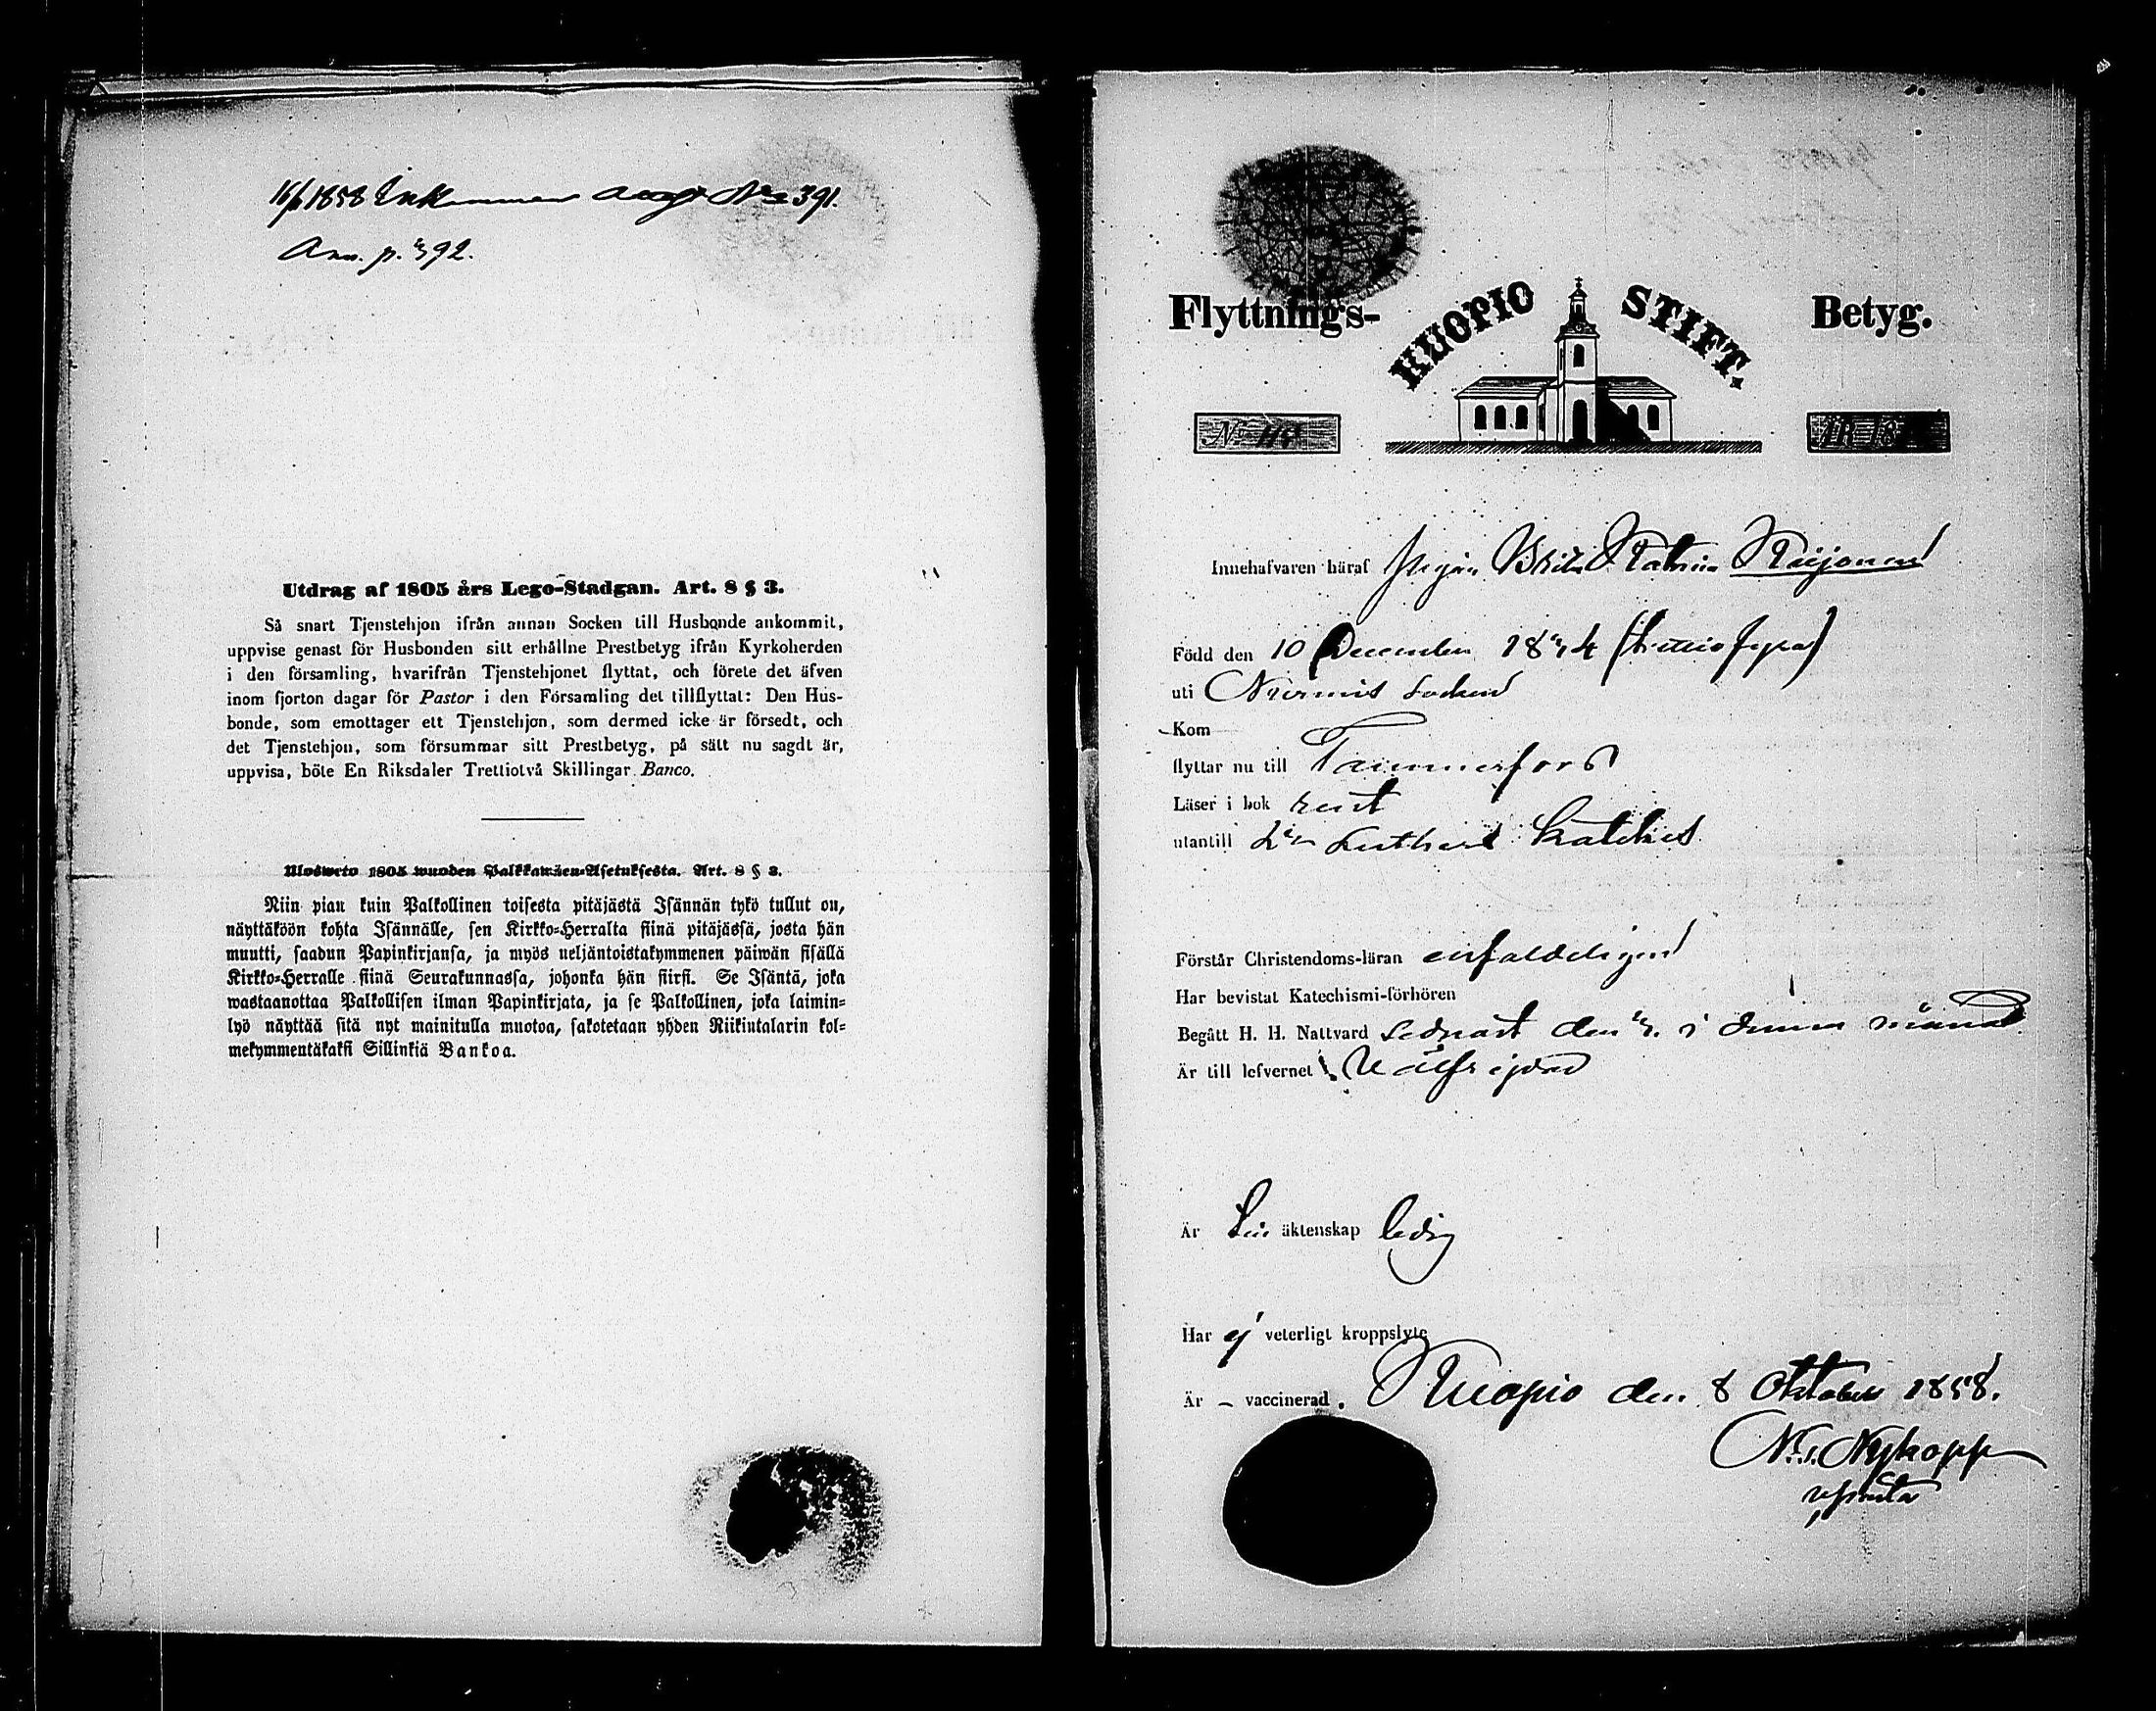 1858 Inkommen No 391.
Ann. p. 392.
Utdrag af 1805 års Lego-Stadgan. Art. 8 § 3.
Så snart Tjenstehjon ifrån annan Socken till Husbonde ankommit,
uppvise genast för Husbonden sitt erhållne Prestbetyg ifrån Kyrkoherden
i den församling, hvarifrån Tjenstehjonet flyttat, och förete det äfven
inom fjorton dagar för Pastor i den Församling det tillflyttat: Den Hus-
bonde, som emottager ett Tjenstehjon, som dermed icke är försedt, och
det Tjenstehjon, som försummar sitt Prestbetyg, på sätt nu sagdt är,
uppvisa, böte En Riksdaler Trettiotvå Skillingar Banco.
Ulosweto 1805 wuoden Palkkawäen-Asetuksesta. Art. 8 § 3.
Niin pian kuin Palkollinen toisesta pitäjästä Isännän tykö tullut on,
näyttäköön kohta Isännälle, sen Kirkko-Herralta siinä pitäjässä, josta hän
muutti, saadun Papinkirjansa, ja myös neljäntoistakymmenen päiwän sisällä
Kirkko-Herralle siinä Seurakunnassa, johonka hän siirsi. Se Isäntä, joka
wastaanottaa Palkollisen ilman Papinkirjata, ja se Palkollinen, joka laimin-
lyö näyttää sitä nyt mainitulla muotoa, sakotetaan yhden Riikintalarin kol-
mekymmentäkaksi Sillinkiä Bankoa.
Flyttnings- KUOPIO STIFT. Betyg.
No ÅR 18
Innehafvaren häraf Pigan Brita Katrin
Född den 10 December 1834 (trettio fyra)
uti Nurmis Socken
Kom
flyttar nu till Tammerfors
Läser i bok rent
utantill Lutheri Kateches
Förstår Christendoms-läran enfaldeligen
Har bevistat Katechismi-förhören
Begått H. H. Nattvard sednast den 3. i denna månad
Är till lefvernet Wälfrejdad
Är till äktenskap ledig
Har ej veterligt kroppslyte
Är – vaccinerad. Kuopio den 8 Oktober 1858.
Nykopp